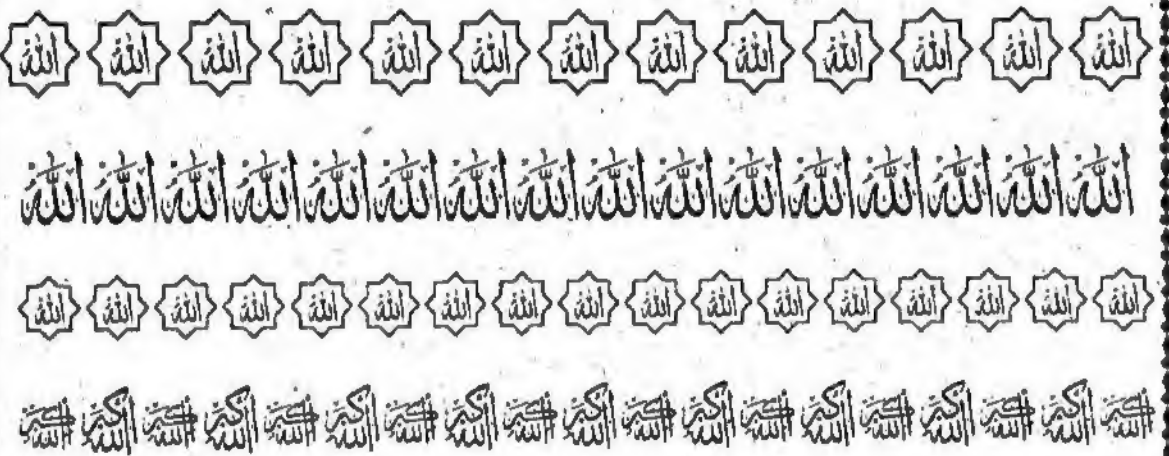 الله الله الله الله الله الله الله الله الله الله الله الله الله
الله الله الله الله الله الله الله الله الله الله الله الله الله الله الله الله
الله الله الله الله الله الله الله الله الله الله الله الله الله الله الله الله الله
الله أكبر الله أكبر الله أكبر الله أكبر الله أكبر الله أكبر الله أكبر الله أكبر الله أكبر